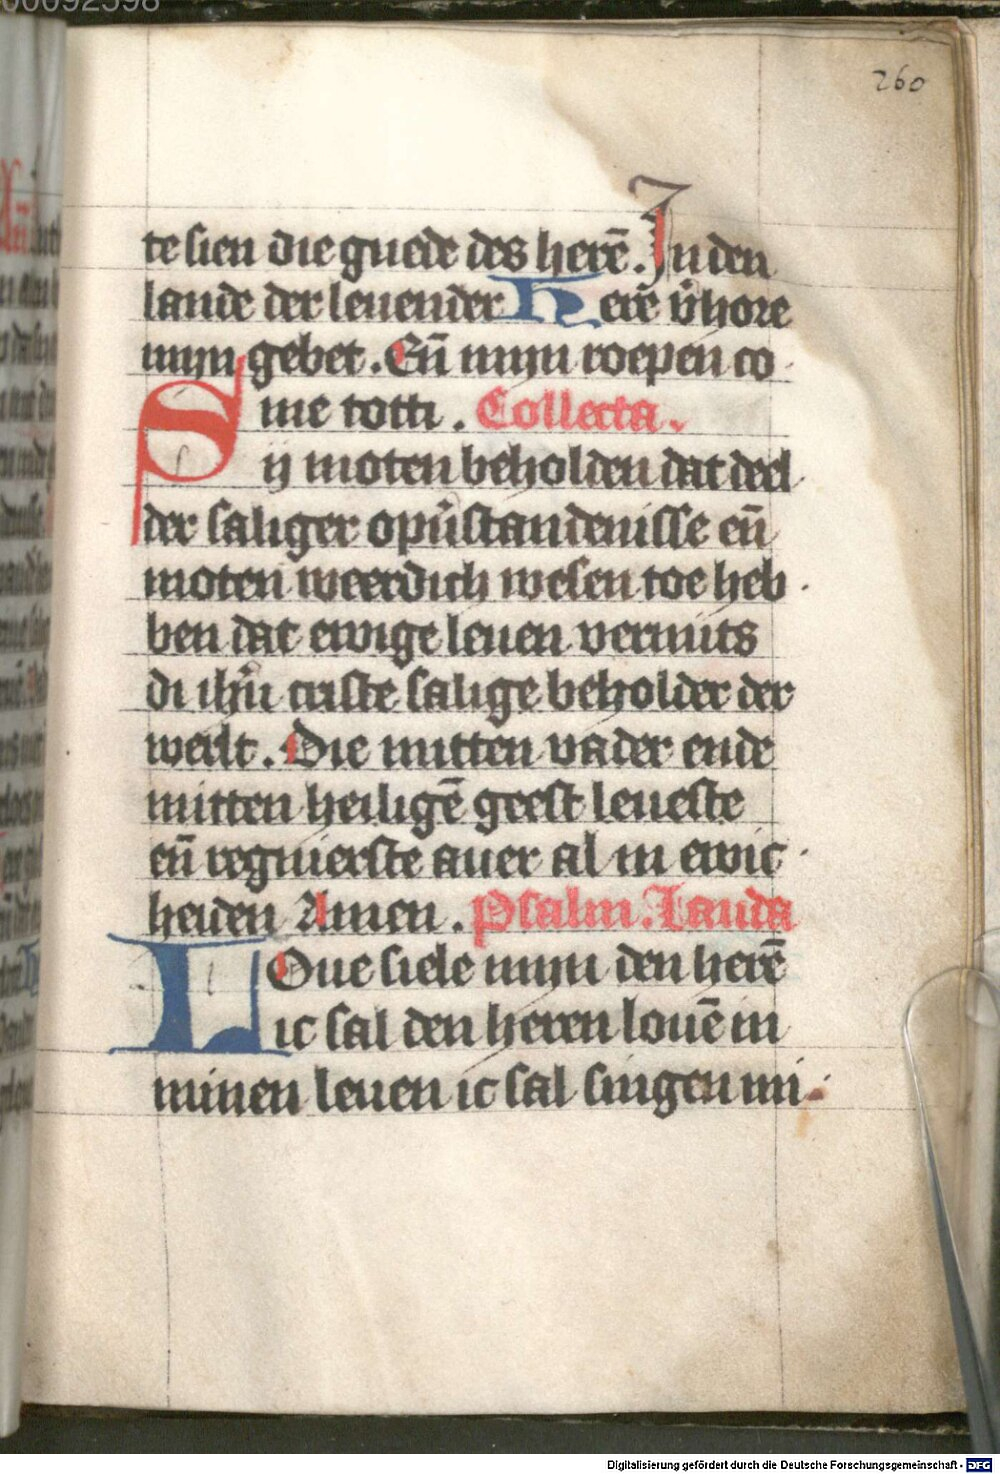 260
te sien die guede des herē. In den
lande der leuender Herē v̄hore
mijn gebet. Eñ mijn roepen co
me totti. Collecta.
Sij moten beholden dat deel
der saliger opūstandenisse eñ
moten weerdich wesen toe heb
ben dat ewige leuen vermits
di ihū criste salige beholder der
werlt. Die mitten vader ende
mitten heiligē geest leueste
eñ regnierste auer al in ewic
heiden Amen. Psalm. Lauda
LOue siele mijn den herē
ic sal den heren louē in
minen leuen ic sal singen mi
Digitalisierung gefördert durch die Deutsche Forschungsgemeinschaft - DFG